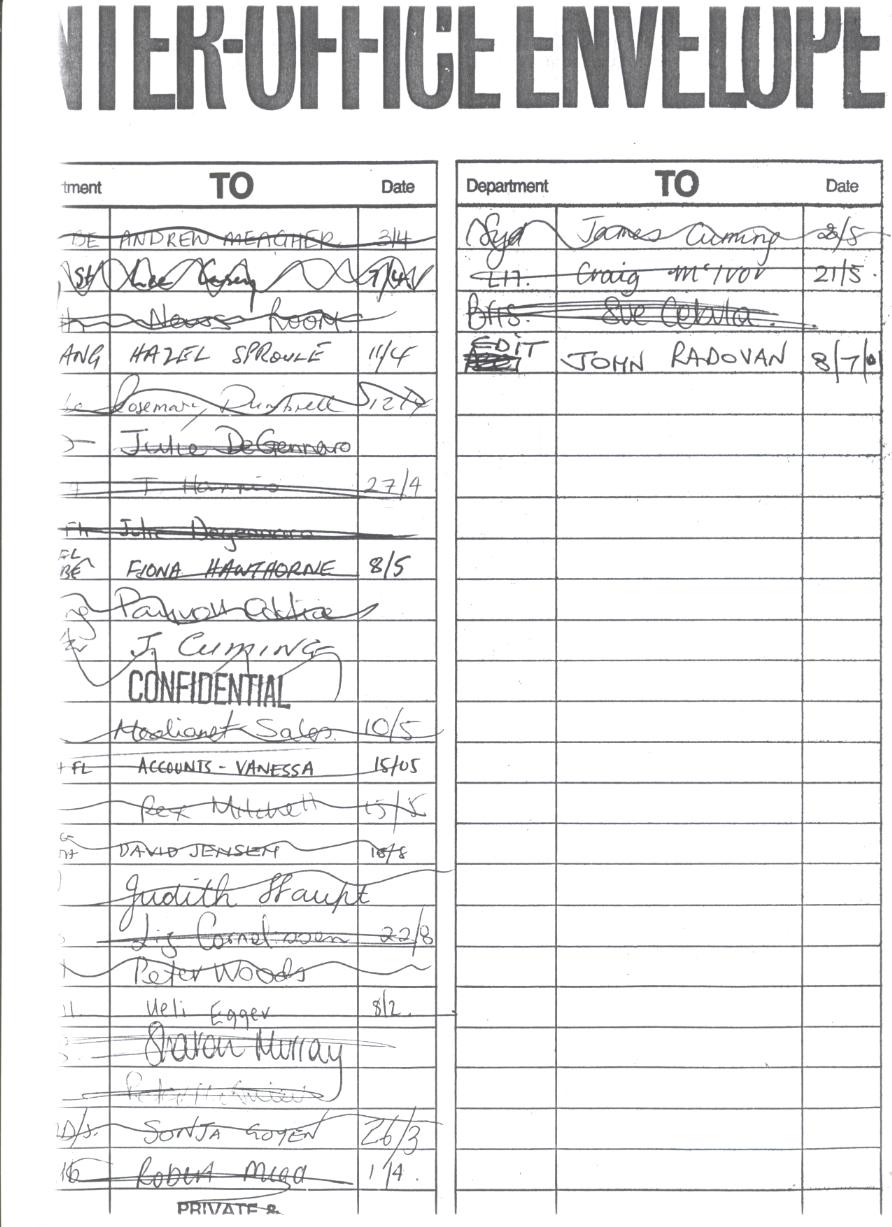 NTER-OFFICE ENVELOPE
tment TO Date
BE ANDREW MEAGHER 3/4
St Lee 7/4
News Room
ANG HAZEL SPROULE 11/4
Rosemary 12/4
Julie DeGennaro
T Harris 27/4
FH Julie Degennaro
FL
BE FIONA HAWTHORNE 8/5
ng
J. CUMING
CONFIDENTIAL
Sales 10/5
FL ACCOUNTS - VANESSA 15/05
Rex Mitchell 15/5
DAVID JENSEN 18/8
Judith Haupt
Liz Cornelissen 22/8
Peter Woods
Ueli Egger 8/2.
Sharon Murray
SONJA GOYEN 26/3
Robert 1/4.
PRIVATE &
Department TO Date
Syd James Cuming 21/5
LH. Craig McIvor 21/5.
Bris. Sue
EDIT JOHN RADOVAN 8/7/